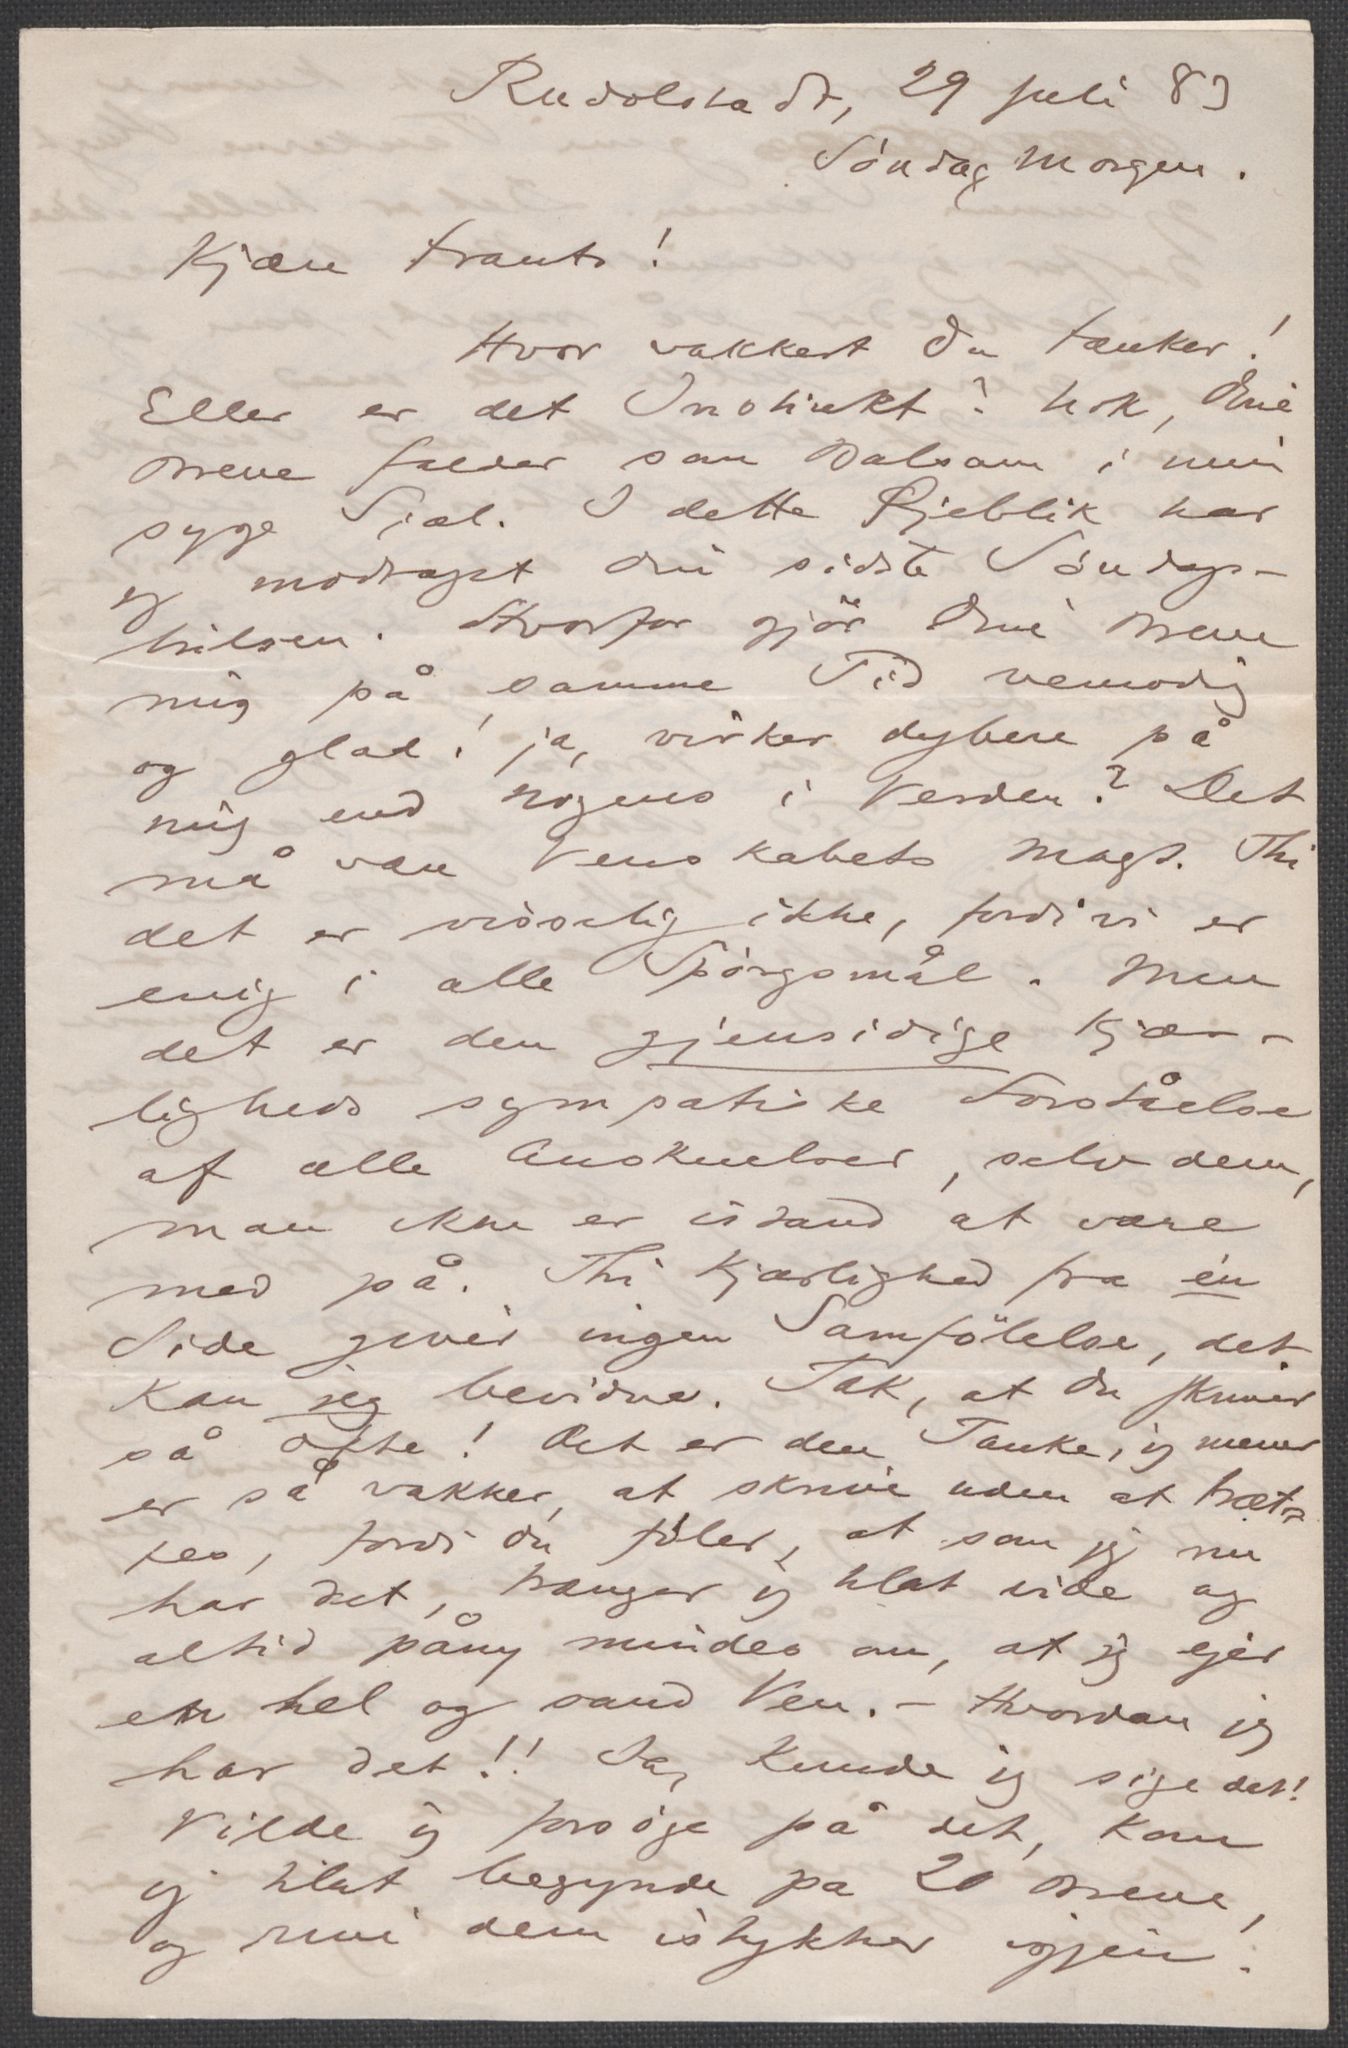 Rudolstadt, 29 Juli 83
Söndag Morgen.
Kjære Frants!
Hvor vakkert du tænker!
Eller er det Instinkt? Nok, dine
Breve falder som Balsam i min
syge Sjæl. I dette Øjeblik har
jeg modtaget din sidste Söndags-
hilsen. Hvorfor gjör dine Breve
mig på samme Tid vemodig
og glad! ja, virker dybere på
mig end nogens i Verden? Det
må være Venskabets Magt. Thi
det er visselig ikke, fordi vi er
enig i alle Spörgsmål. Men
det er den gjensidige Kjær-
ligheds sympatiske Forståelse
af alle Anskuelser, selv dem,
man ikke er istand at være
med på. Thi Kjærlighed fra én
Side giver ingen Samfölelse, det
kan jeg bevidne. Tak, at du skriver
så ofte! Det er den Tanke, jeg mener
er så vakker, at skrive uden at træt-
tes, fordi du föler, at som jeg nu
har det, trænger jeg til at vide og
altid påny mindes om, at jeg ejer
en hel og sand Ven. – Hvordan jeg
har det!! Ja, kunde jeg sige det!
Vilde jeg forsöge på det, kom
jeg til at begynde på 20 Breve,
og rive dem istykker igjen!